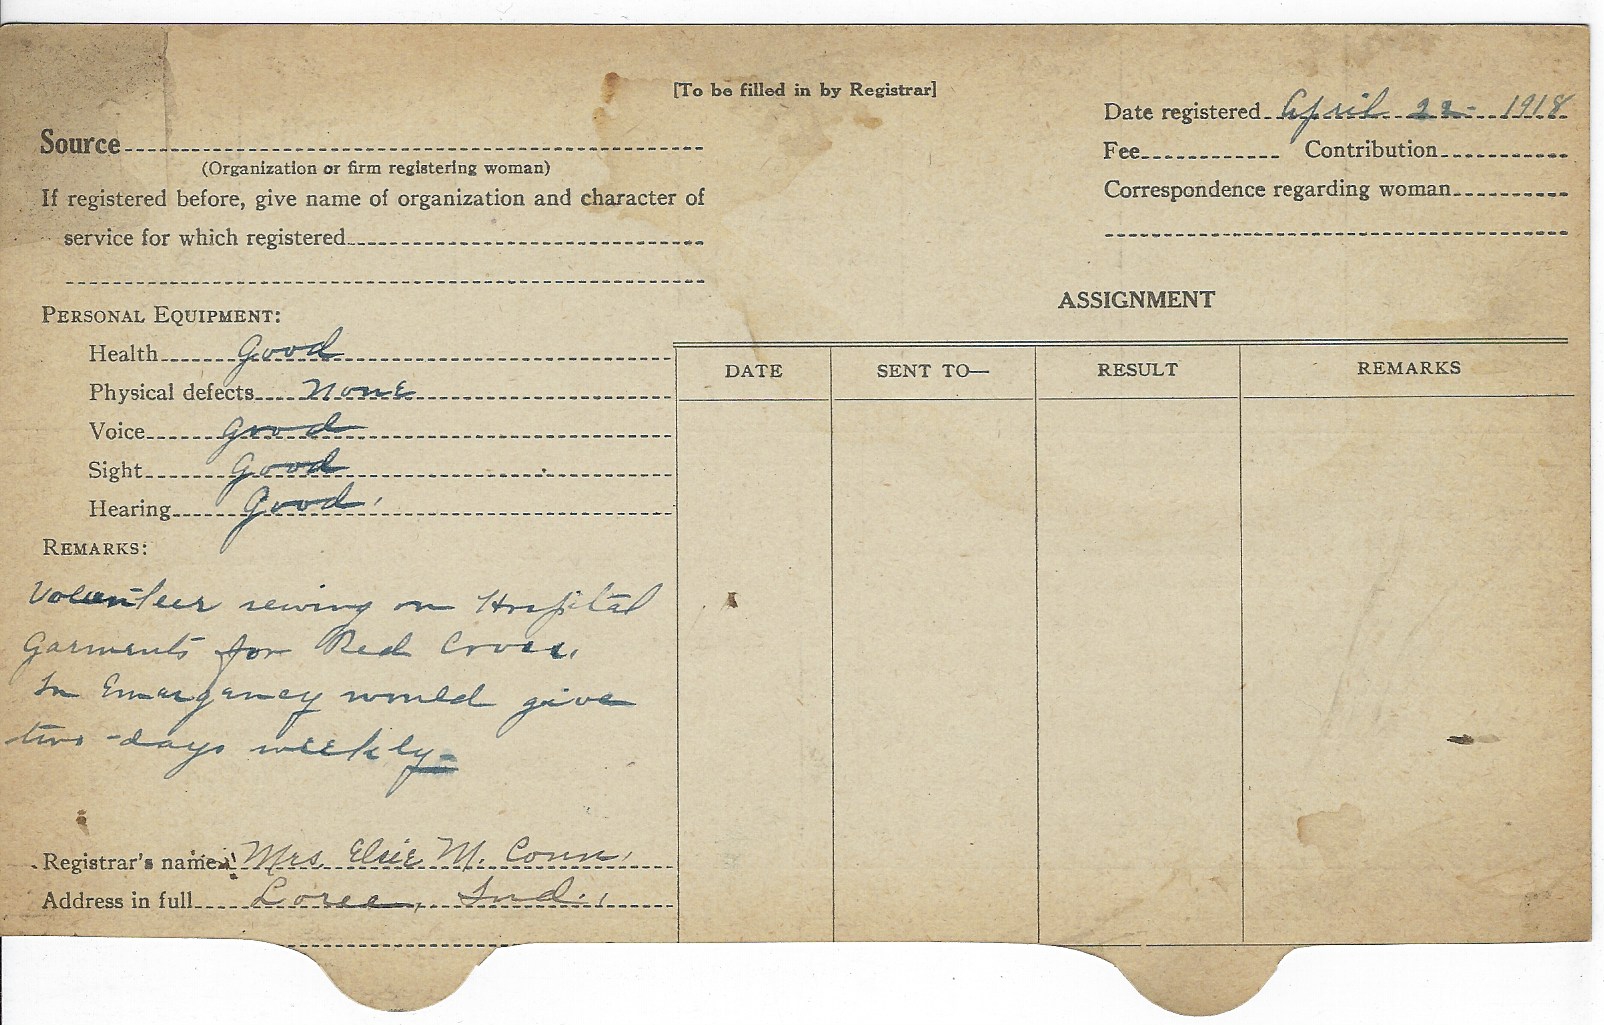 [To be filled in by Registrar]
Date registered April 22 - 1918
Source
(Organization or firm registering woman)
Fee Contribution
If registered before, give name of organization and character of
service for which registered
Correspondence regarding woman
PERSONAL EQUIPMENT:
Health Good
Physical defects None
Voice Good
Sight Good
Hearing Good
REMARKS:
Volunteer sewing on Hospital
Garments for Red Cross.
In Emergency would give
two-days weekly-
Registrar's name Mrs Elsie M. Conn
Address in full Loree, Ind.
ASSIGNMENT
DATE SENT TO— RESULT REMARKS